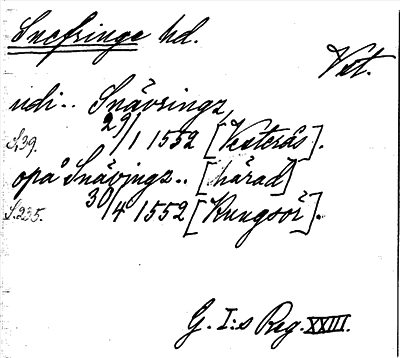 Snefringe hd.
Vst.
udi.. Snävringz
S.39. 29/1 1552 [Vesterås].
opå Snävingz.. [härad]
S.235. 30/4 1552 [Kungsör].
G. I:s Reg. XXIII.